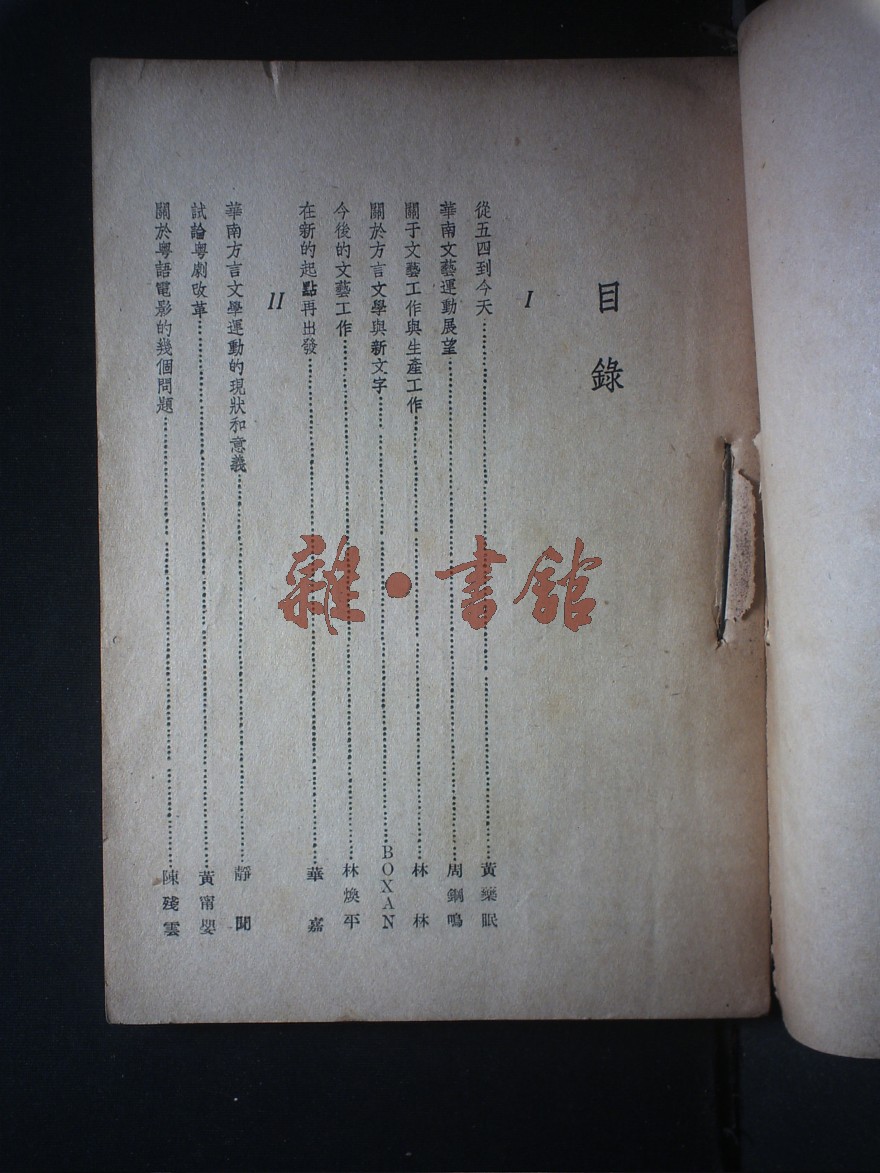 目錄
I
從五四到今天……黃藥眠
華南文藝運動展望……周鋼鳴
關于文藝工作與生產工作……林林
關於方言文學與新文字……BOXAN
今後的文藝工作……林煥平
在新的起點再出發……華嘉
II
華南方言文學運動的現狀和意義……靜聞
試論粵劇改革……黃甯嬰
關於粵語電影的幾個問題……陳殘雲
雜·書館